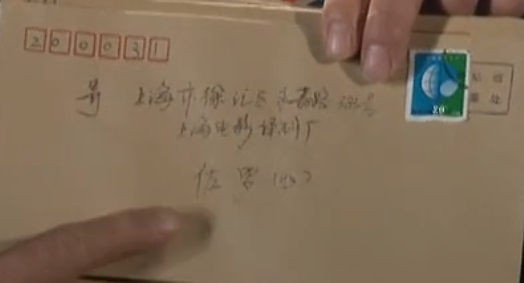 200031
上海市徐汇区永嘉路383号
上海电影译制厂
佐罗(收)
20
贴邮
票处